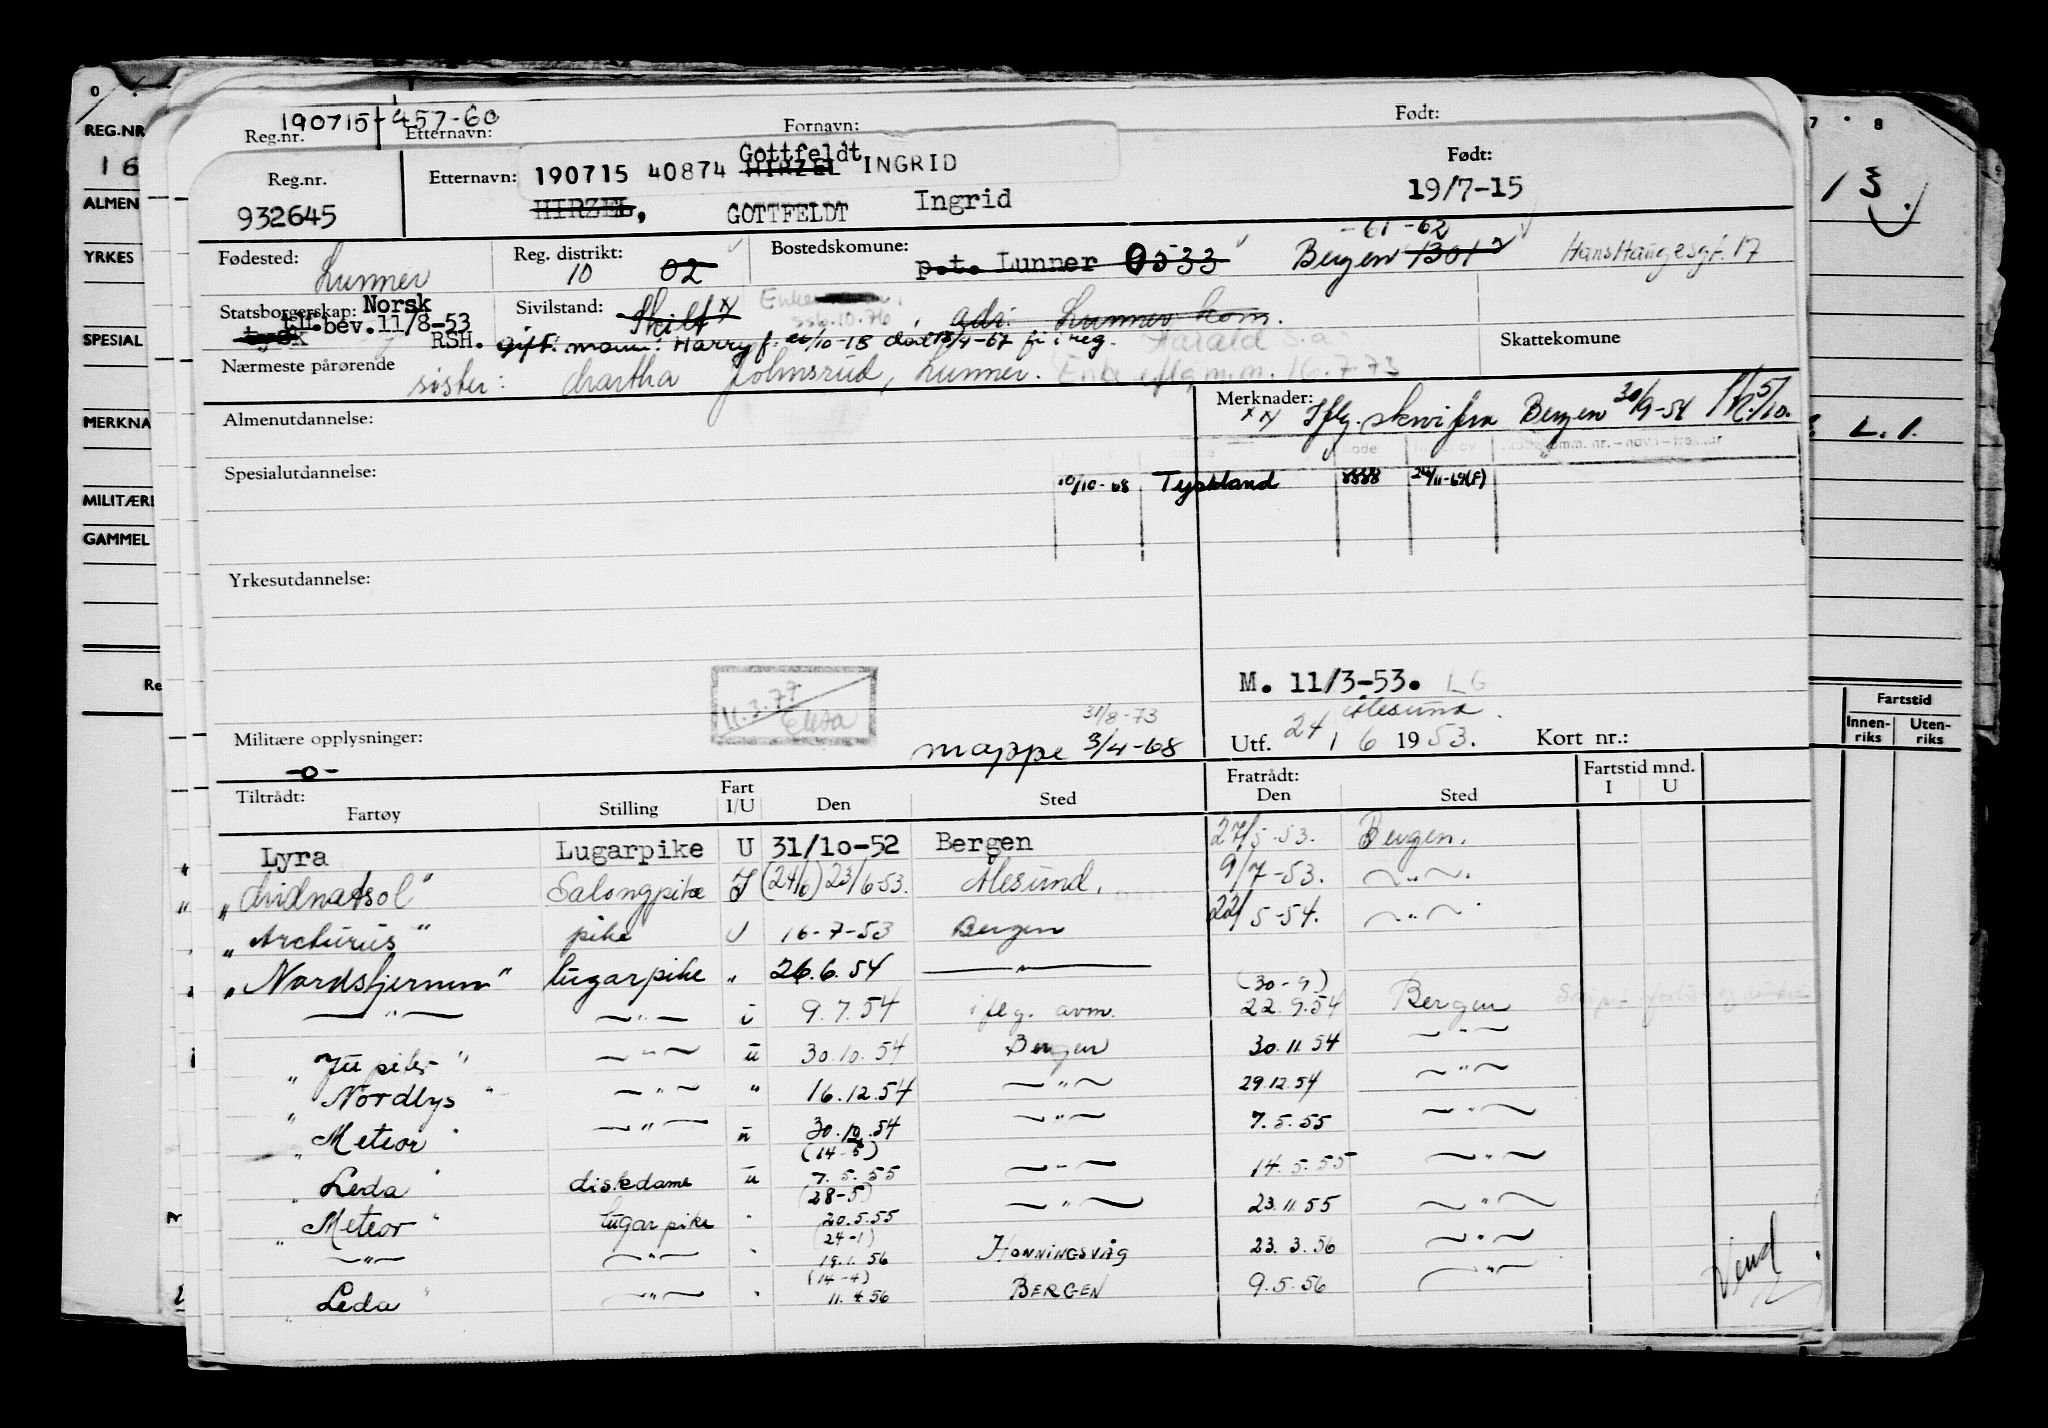 190715-457-60
Reg.nr. Etternavn: Fornavn: Født:
190715 40874 Gottfeldt HIRZEL INGRID
Reg.nr. Etternavn: Født:
932645 HIRZEL, GOTTFELDT Ingrid 19/7-15
-61 -62
Fødested: Lunner Reg. distrikt: 10 02 Bostedskomune: p.t. Lunner 0533 Bergen 1301 Hans Haugesgt. 17
Statsborgerskap: Norsk Sivilstand: Skilt x Enke adr. Lunner kom.
tysk bev. 11/8-53 RSH. gift. mann: Harry f. /10-13 død /4-67 Harald s.a Skattekomune
Nærmeste pårørende søster: Martha Johnsrud, Lunner. Enke iflg m.m. 16.7.73
Almenutdannelse:
Merknader: xx Iflg. skriv fra Bergen 30/9-54
Spesialutdannelse:
10/10-68 Tyskland 8888 24/11-69(F)
Yrkesutdannelse:
11.3.77
M. 11/3-53. LG
Ålesund
31/8-73
Militære opplysninger: mappe 3/4-68 Utf. 24/6 1953. Kort nr.:
-o-
Tiltrådt: Fratrådt: Fartstid mnd.
Fartøy Stilling Fart I/U Den Sted Den Sted I U
Lyra Lugarpike U 31/10-52 Bergen 27/5-53. Bergen.
"Midnatsol" Salongpike I (24/6) 23/6-53. Ålesund. 9/7-53. — " —
"Arcturus" pike U 16-7-53 Bergen 22/5-54. — " —
"Nordstjernen" lugarpike " 26.6.54 — " —
(30-9)
— " — — " — i 9.7.54 iflg. avm. 22.9.54 Bergen
"Jupiter" — " — u 30.10.54 Bergen 30.11.54 — " —
"Nordlys" — " — " 16.12.54 — " — 29.12.54 — " —
"Meteor" — " — u 30.12.54 — " — 7.5.55 — " —
(14-5)
"Leda" diskdame u 7.5.55 — " — 14.5.55 — " —
(28-5)
"Meteor" lugarpike " 20.5.55 — " — 23.11.55 — " —
(24-1)
— " — — " — " 19.1.56 HONNINGSVÅG 23.3.56 — " —
(14-4)
"Leda" — " — " 11.4.56 BERGEN 9.5.56 — " —
Vend
REG.NR
16
ALMEN
YRKES
SPESIAL
MERKNA
MILITÆRE
GAMMEL
Re
7 8
13.
L.1.
Fartstid
Innen-riks Uten-riks